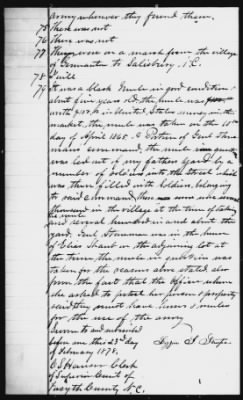 army wherever they found them.
75 There was not
76 There was not
77 They were on a march from the village
of Germanton to Salisbury, N.C.
78 I will
79 It was a black Mule in good condition
about five years old, the mule was
worth $ in United States money in the
market. The mule was taken on the 10th
day of April 1865 a Portion of Genl Stone
mans command, the mule
was led out of my fathers yard by a
number of soldiers into the street which
was then filled with soldiers, belonging
to said command, there were some
thousands in the village at the time of taking
the mule
and several hundred in and about the
yard. Genl Stoneman was in the house
of Elias Shaub on the adjoining lot at
the time, the mule in question was
taken for the reasons above stated, also
from the fact that the officer when
she asked to protect her person & property
said they must have horses & mules
for the use of the army
Sworn to and subscribed
before me this 23rd day
of February 1878.
C S Hauser Clerk
of Superior Court of
Forsyth County N.C.